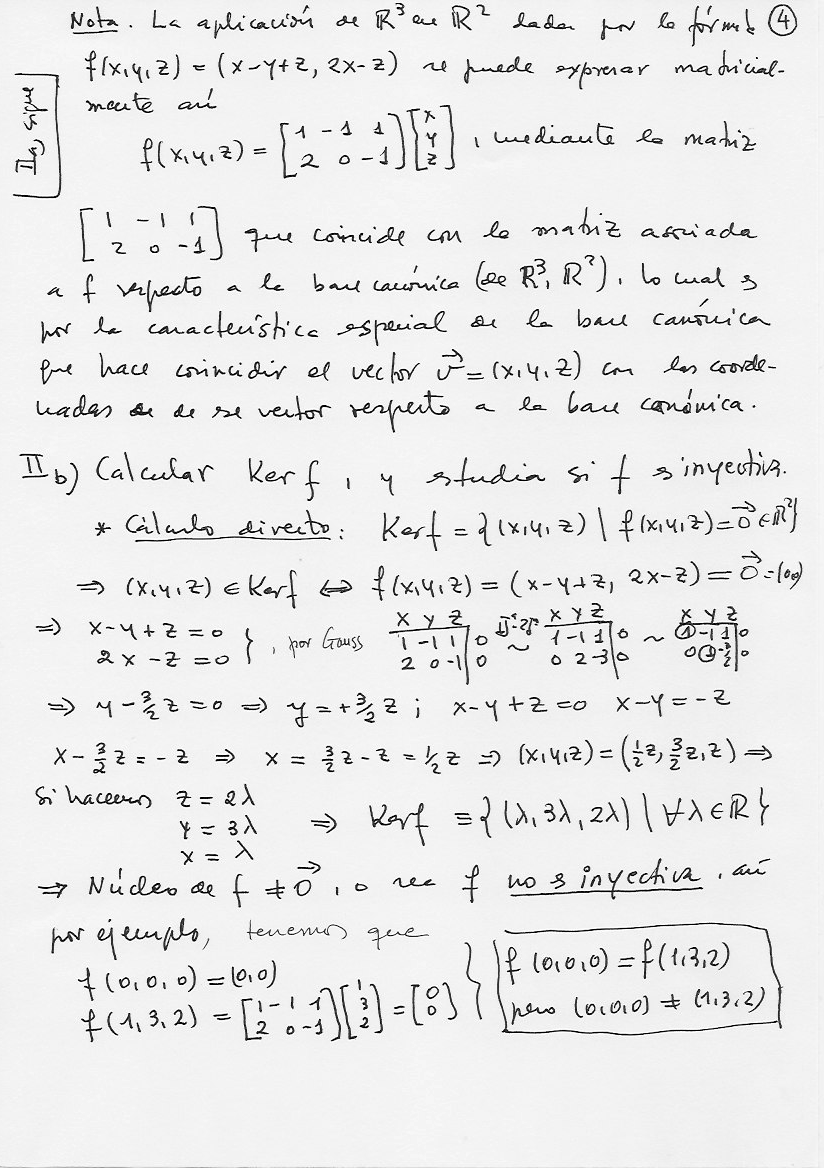 Nota. La aplicación de ℝ³ en ℝ² dada por la fórmula ④
f(x,y,z) = (x-y+z, 2x-z) se puede expresar matricial-
mente así
II a) sigue
f(x,y,z) = [1 -1 1; 2 0 -1] [x; y; z], mediante la matriz
[1 -1 1; 2 0 -1] que coincide con la matriz asociada
a f respecto a la base canónica (de ℝ³, ℝ²), lo cual es
por la característica especial de la base canónica
que hace coincidir el vector v⃗ = (x,y,z) con las coorde-
nadas de de se vector respecto a la base canónica.
II b) Calcular Ker f, y estudia si f es inyectiva.
* Cálculo directo: Ker f = {(x,y,z) | f(x,y,z) = 0⃗ ∈ ℝ²}
⇒ (x,y,z) ∈ Ker f ⇔ f(x,y,z) = (x-y+z, 2x-z) = 0⃗ = (0,0)
⇒ x-y+z=0
2x -z=0 }, por Gauss
x y z
1 -1 1 | 0
2 0 -1 | 0
~
x y z
1 -1 1 | 0
0 2 -3 | 0
~
x y z
① -1 1 | 0
0 ① -3/2 | 0
⇒ y - 3/2 z = 0 ⇒ y = + 3/2 z ; x-y+z=0 x-y=-z
x - 3/2 z = -z ⇒ x = 3/2 z - z = 1/2 z ⇒ (x,y,z) = (1/2 z, 3/2 z, z) ⇒
Si hacemos z = 2λ
y = 3λ ⇒ Ker f ≡ {(λ, 3λ, 2λ) | ∀λ ∈ ℝ}
x = λ
⇒ Núcleo de f ≠ 0⃗, o sea f no es inyectiva, así
por ejemplo, tenemos que
f(0,0,0) = (0,0)
f(1,3,2) = [1 -1 1; 2 0 -1] [1; 3; 2] = [0; 0] }
f(0,0,0) = f(1,3,2)
pero (0,0,0) ≠ (1,3,2)